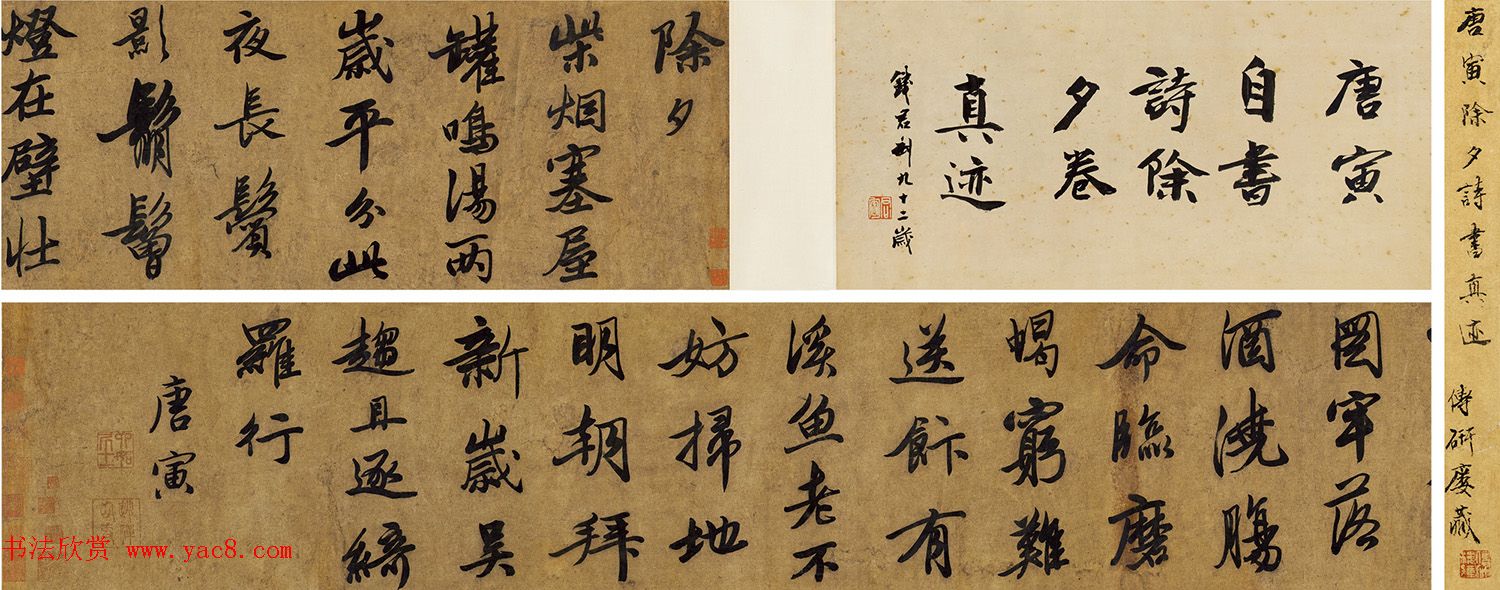 唐寅除夕詩書真迹 傳研廔藏
唐寅
自書
詩除
夕卷
真迹
錢君匋九十二歲
除夕
柴烟塞屋
罐鳴湯兩
歲平分此
夜長鬢
影鬅鬙
燈在壁壮
圖牢落
酒澆腸
命臨磨
蝎窮難
送飰有
溪魚老不
妨掃地
明朝拜
新歲吴
趨且逐綺
羅行
唐寅
书法欣赏 www.yac8.com